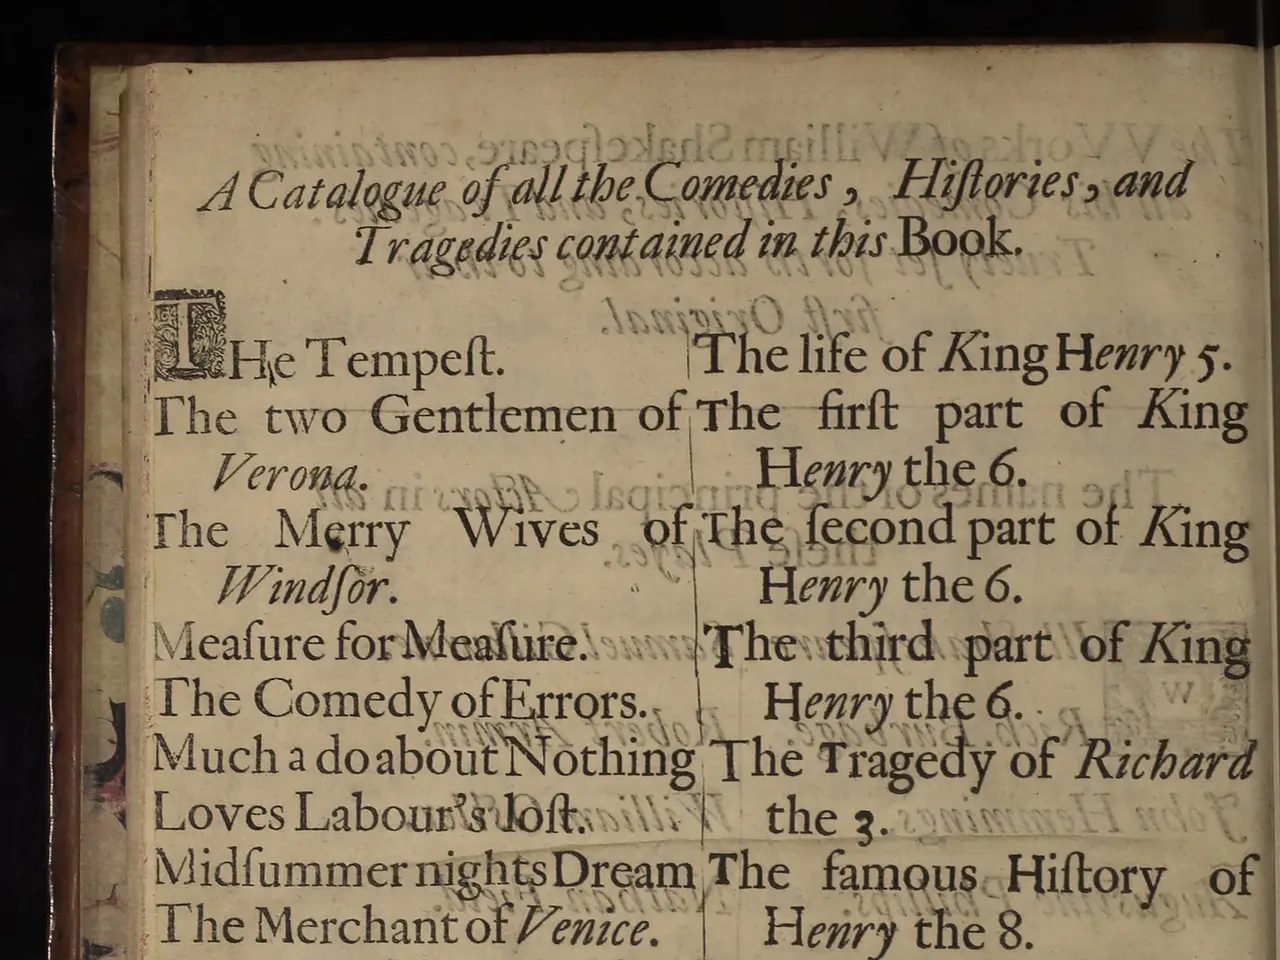 A Catalogue of all the Comedies, Hiſtories, and
Tragedies contained in this Book.
THe Tempeſt.
The two Gentlemen of
Verona.
The Merry Wives of
Windſor.
Meaſure for Meaſure.
The Comedy of Errors.
Much a do about Nothing
Loves Labour's loſt.
Midſummer nights Dream
The Merchant of Venice.
The life of King Henry 5.
The firſt part of King
Henry the 6.
The ſecond part of King
Henry the 6.
The third part of King
Henry the 6.
The Tragedy of Richard
the 3.
The famous Hiſtory of
Henry the 8.